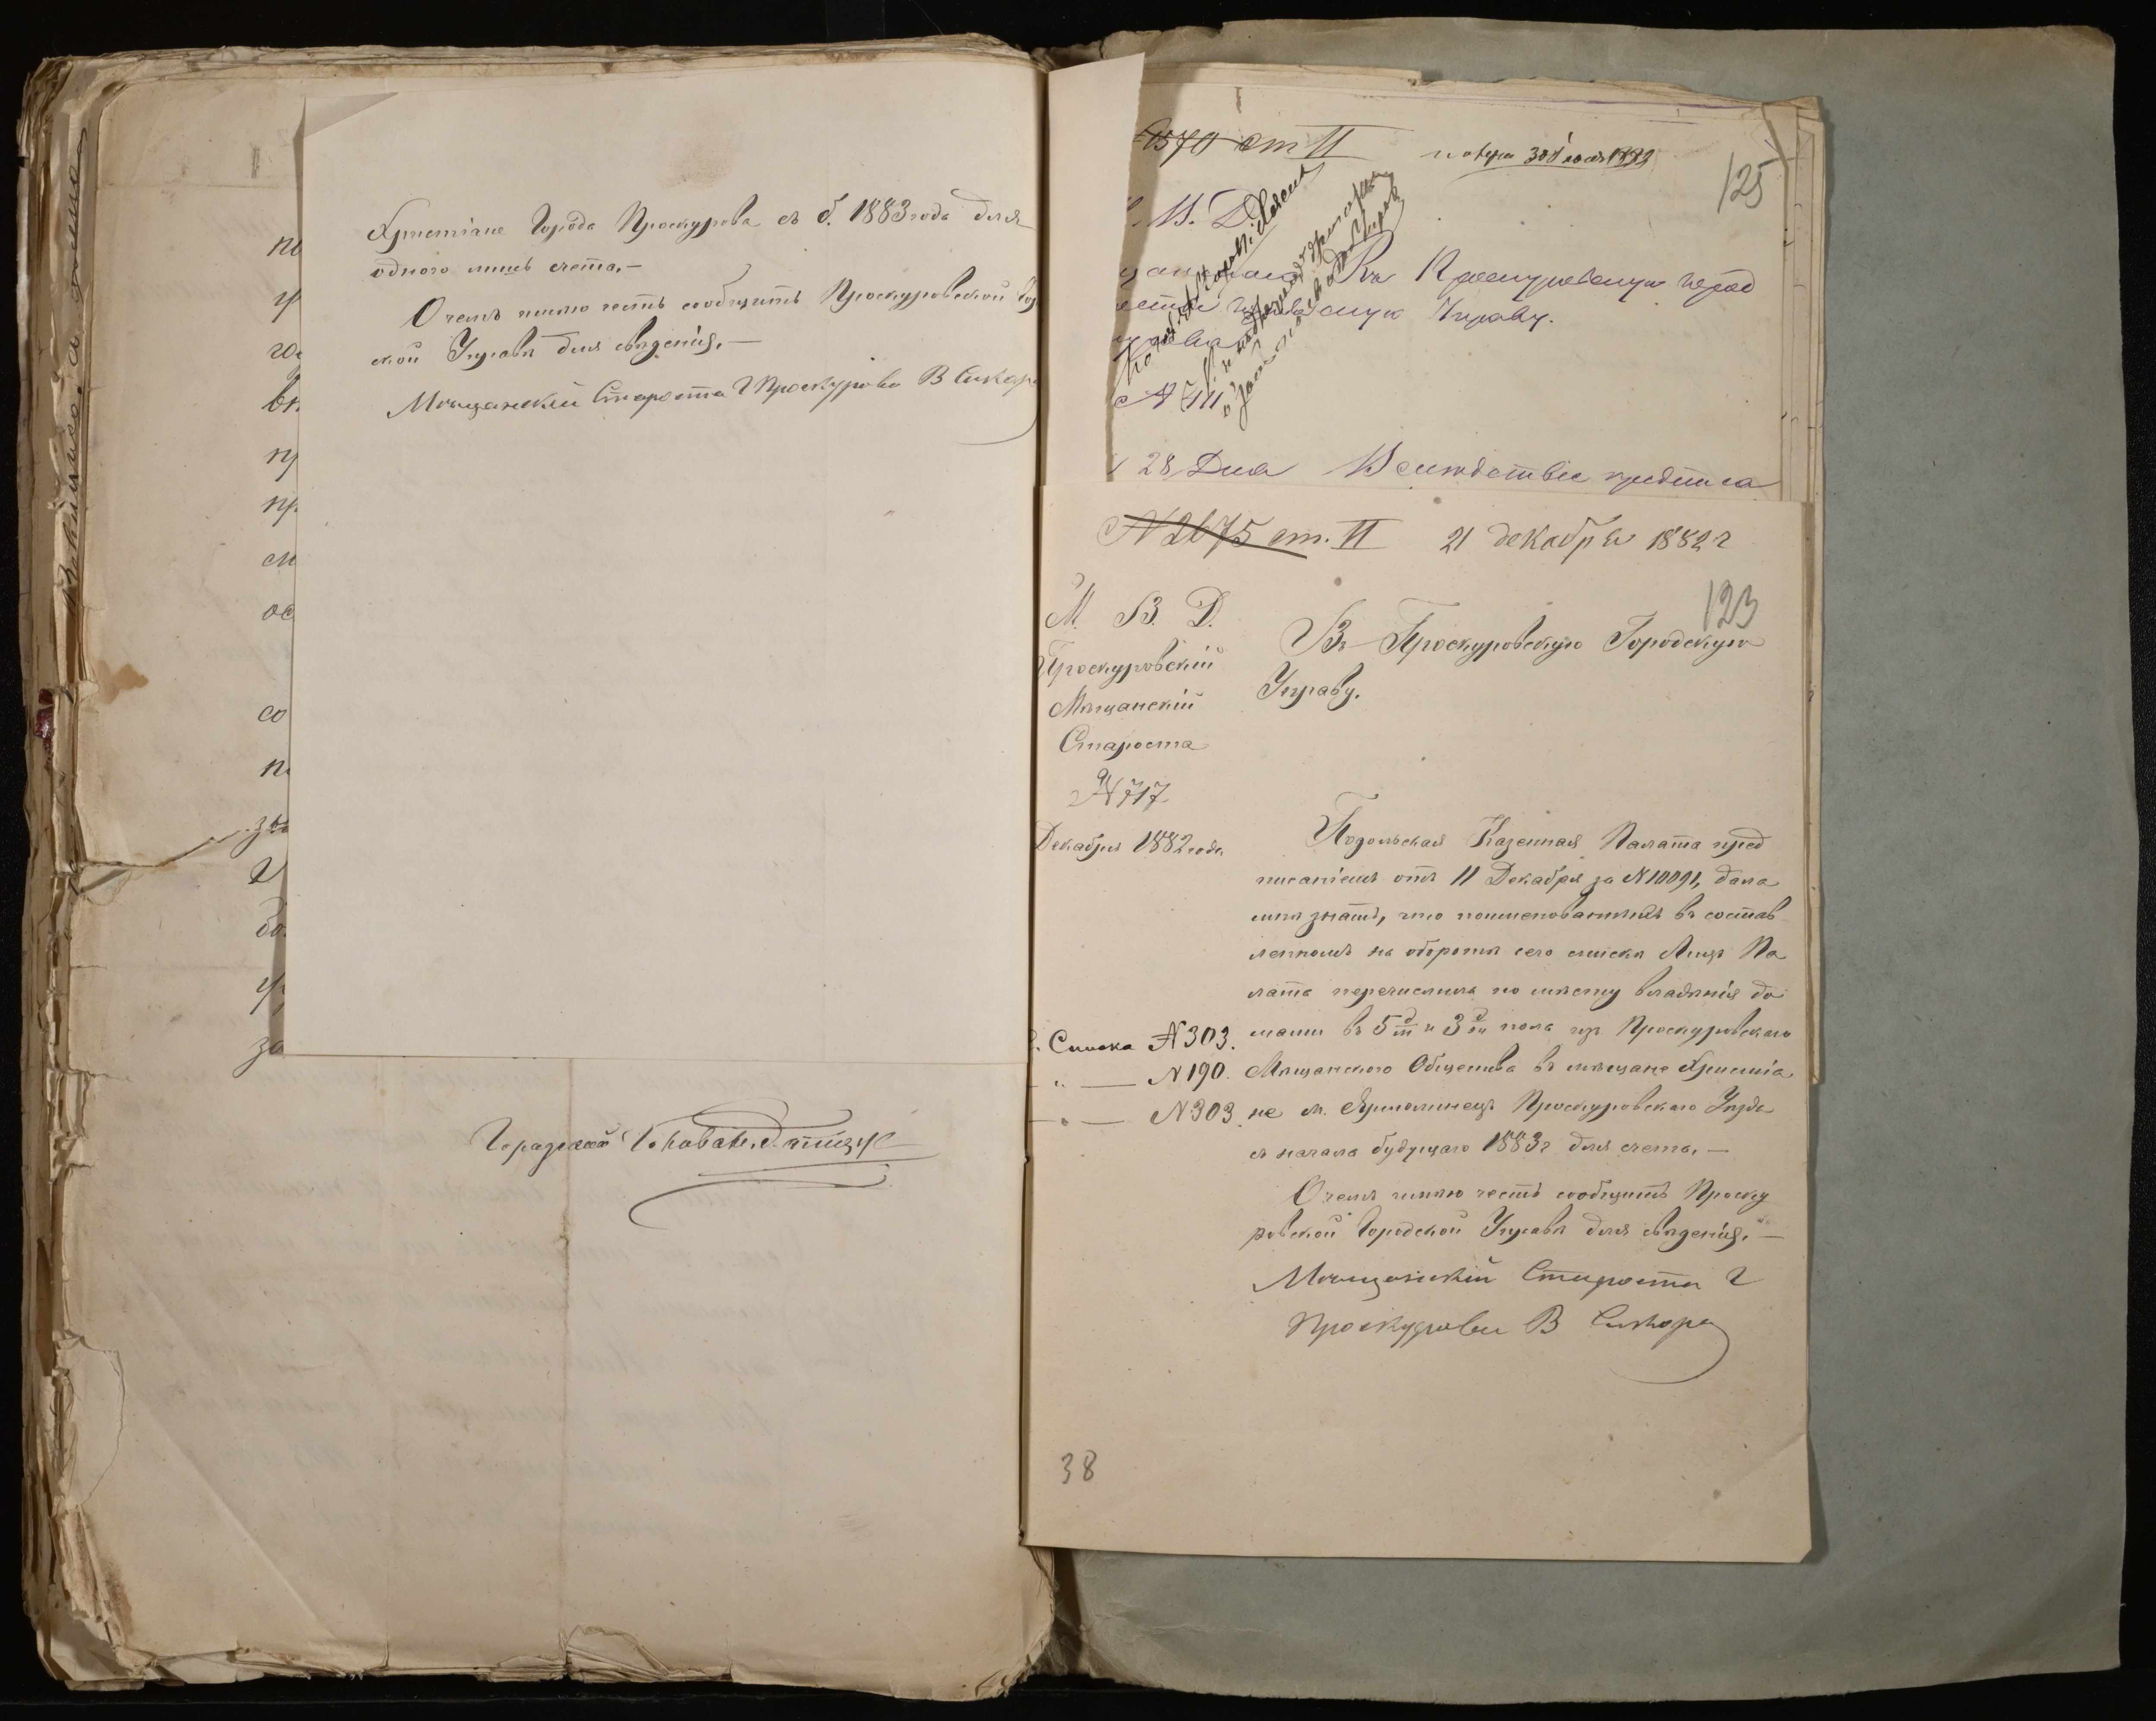 Христіане Города Проскурова съ б. 1883 года для
одного лишь счета.—
О чемъ имѣю честь сообщить Проскуровской Го
ской Управѣ для свѣденія.—
Мѣщанскій Староста г Проскурова В Сикор
по
вѣ
пр
пр
ос
со
за
за
Городской Голова
1570 ст II
125
В. Д.
Въ Проскуровскую Город
скую Управу.
28 Дня Вследствіе предписа
№ 2675 ст. II 21 декабря 1882 г
123
М. В. Д.
Проскуровскій
Мѣщанскій
Староста
№ 717
Декабря 1882 года
Въ Проскуровскую Городскую
Управу.
Подольская Казенная Палата пред
писаніемъ отъ 11 Декабря за № 10091, дала
мнѣ знать, что поименованныхъ въ состав
ленномъ на оборотѣ сего списка Лицъ Па
лата перечислила по мѣсту владѣнія до
мами въ 5 и 3 пола изъ Проскуровскаго
Мѣщанского Общества въ мѣщане Христіа
не м. Ярмолинецъ Проскуровскаго Уѣзда
съ начала будущаго 1883 г для счета.—
Списка № 303.
" — № 190.
" — № 303.
О чемъ имѣю честь сообщить Проску
ровской Городской Управѣ для свѣденія.—
Мѣщанскій Староста г
Проскурова В Сикора
38